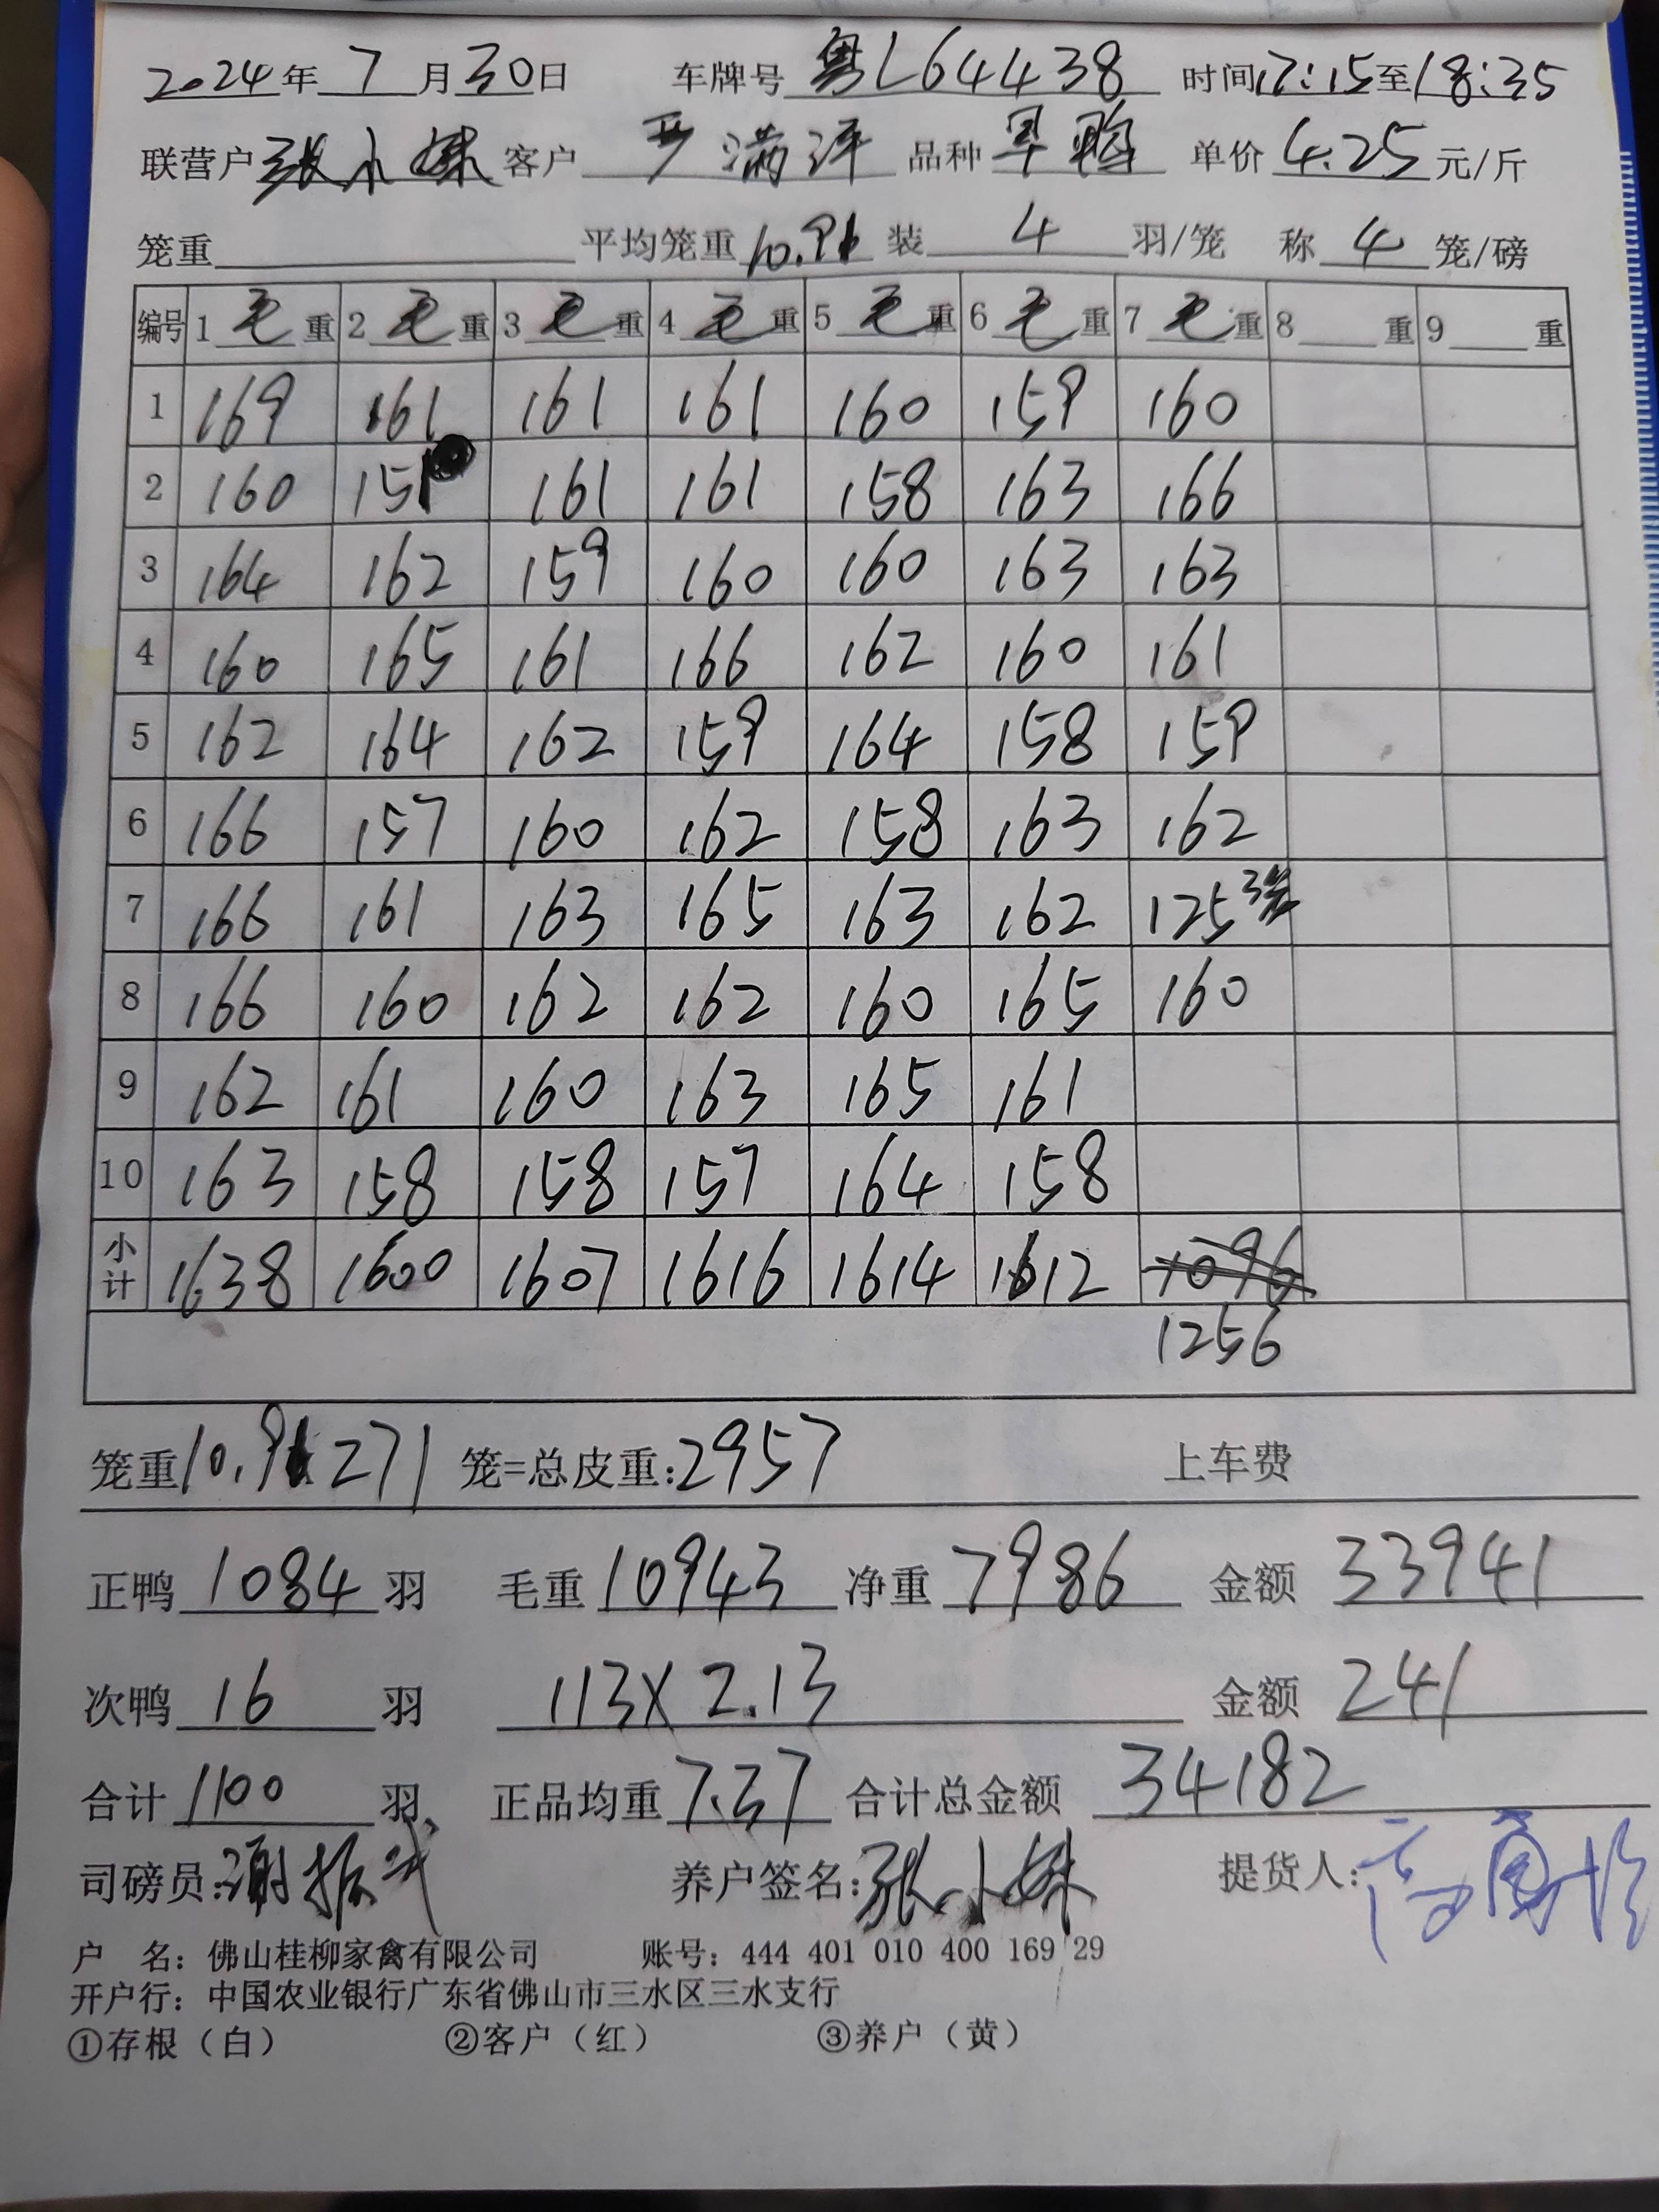 2024年 7 月 30 日 车牌号 粤L64438 时间 17:15 至 18:35
联营户 张小妹 客户 严满洋 品种 旱鸭 单价 4.25 元/斤
笼重 平均笼重 10.91 装 4 羽/笼 称 4 笼/磅
编号 1 毛 重 2 毛 重 3 毛 重 4 毛 重 5 毛 重 6 毛 重 7 毛 重 8 重 9 重
1 169 161 161 161 160 159 160
2 160 151 161 161 158 163 166
3 164 162 159 160 160 163 163
4 160 165 161 166 162 160 161
5 162 164 162 159 164 158 159
6 166 157 160 162 158 163 162
7 166 161 163 165 163 162 125 3笼
8 166 160 162 162 160 165 160
9 162 161 160 163 165 161
10 163 158 158 157 164 158
小计 1638 1600 1607 1616 1614 1612 1096
1256
笼重 10.91 271 笼=总皮重: 2957 上车费
正鸭 1084 羽 毛重 10943 净重 7986 金额 33941
次鸭 16 羽 113X2.13 金额 241
合计 1100 羽 正品均重 7.37 合计总金额 34182
司磅员: 谢振武 养户签名: 张小妹 提货人:
户 名: 佛山桂柳家禽有限公司 账号: 444 401 010 400 169 29
开户行: 中国农业银行广东省佛山市三水区三水支行
①存根(白) ②客户(红) ③养户(黄)